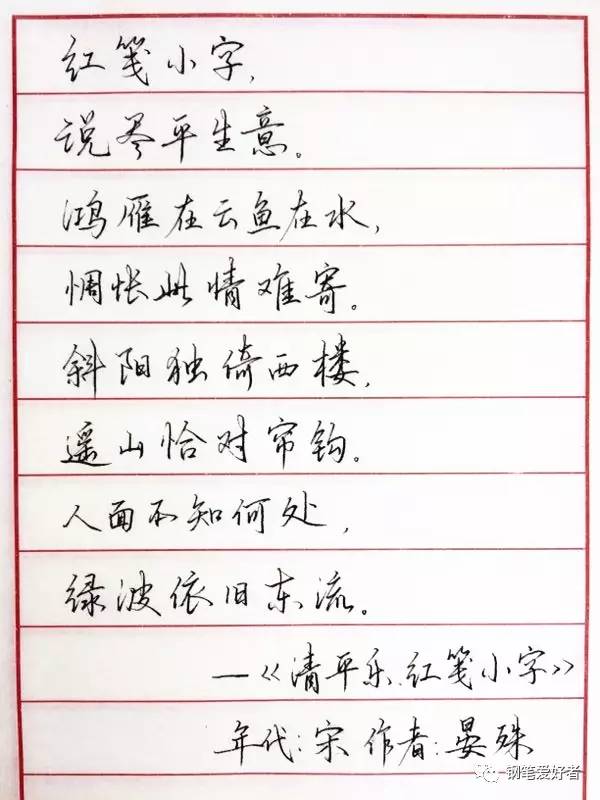 红笺小字，
说尽平生意。
鸿雁在云鱼在水，
惆怅此情难寄。
斜阳独倚西楼，
遥山恰对帘钩。
人面不知何处，
绿波依旧东流。
—《清平乐.红笺小字》
年代：宋 作者：晏殊
钢笔爱好者